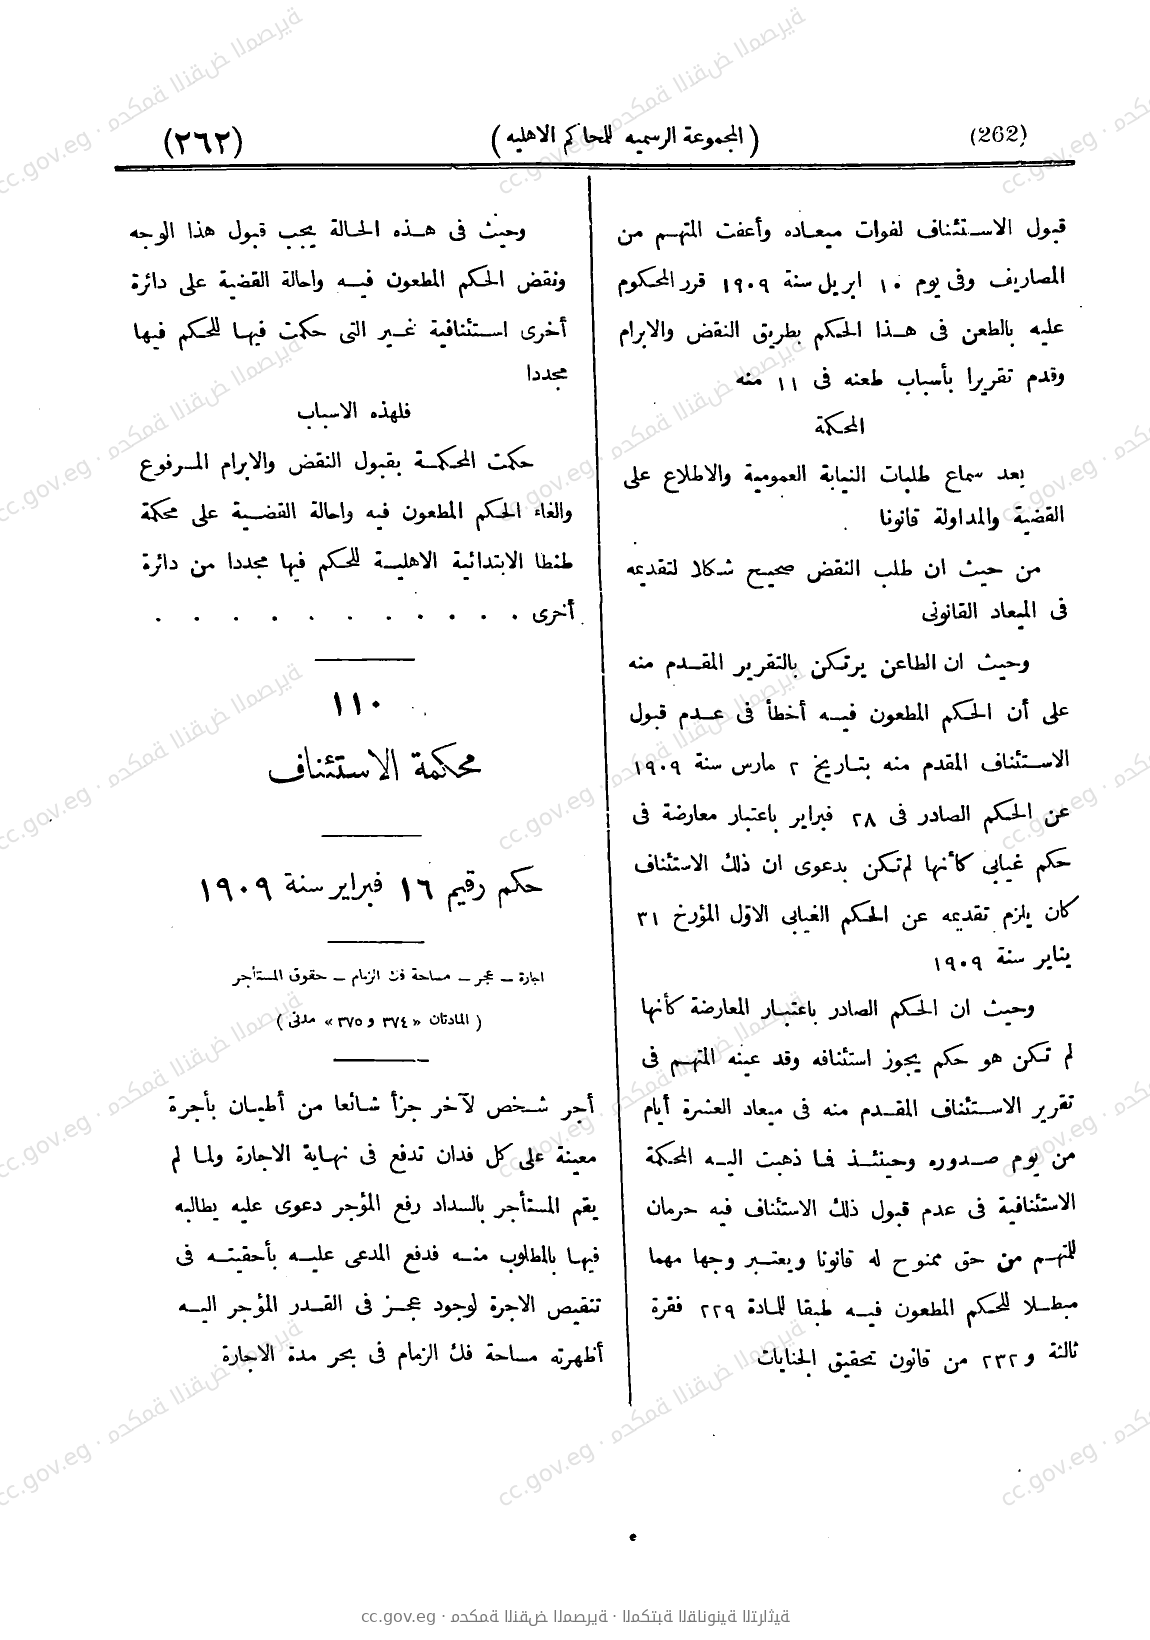 (262)
( المجموعة الرسميه للمحاكم الاهليه )
(٢٦٢)
قبول الاستئناف لفوات ميعاده وأعفت المتهم من
المصاريف وفى يوم ١٠ ابريل سنة ١٩٠٩ قرر المحكوم
عليه بالطعن فى هذا الحكم بطريق النقض والابرام
وقدم تقريرا بأسباب طعنه فى ١١ منه
المحكمة
بعد سماع طلبات النيابة العمومية والاطلاع على
القضية والمداولة قانونا
من حيث ان طلب النقض صحيح شكلا لتقديمه
فى الميعاد القانونى
وحيث ان الطاعن يرتكن بالتقرير المقدم منه
على أن الحكم المطعون فيه أخطأ فى عدم قبول
الاستئناف المقدم منه بتاريخ ٢ مارس سنة ١٩٠٩
عن الحكم الصادر فى ٢٨ فبراير باعتبار معارضة فى
حكم غيابى كأنها لم تكن بدعوى ان ذلك الاستئناف
كان يلزم تقديمه عن الحكم الغيابى الاوّل المؤرخ ٣١
يناير سنة ١٩٠٩
وحيث ان الحكم الصادر باعتبار المعارضة كأنها
لم تكن هو حكم يجوز استئنافه وقد عينه المتهم فى
تقرير الاستئناف المقدم منه فى ميعاد العشرة أيام
من يوم صدوره وحينئذ فما ذهبت اليه المحكمة
الاستئنافية فى عدم قبول ذلك الاستئناف فيه حرمان
للمتهم من حق ممنوح له قانونا ويعتبر وجها مهما
مبطلا للحكم المطعون فيه طبقا للمادة ٢٢٩ فقرة
ثالثة و ٢٣٢ من قانون تحقيق الجنايات
وحيث فى هذه الحالة يجب قبول هذا الوجه
ونقض الحكم المطعون فيه واحالة القضية على دائرة
أخرى استئنافية غير التى حكمت فيها للحكم فيها
مجددا
فلهذه الاسباب
حكمت المحكمة بقبول النقض والابرام المرفوع
والغاء الحكم المطعون فيه واحالة القضية على محكمة
طنطا الابتدائية الاهلية للحكم فيها مجددا من دائرة
أخرى . . . . . . . . . . .
١١٠
محكمة الاستئناف
حكم رقيم ١٦ فبراير سنة ١٩٠٩
اجارة ــ عجز ــ مساحة فك الزمام ــ حقوق المستأجر
( المادتان «٣٧٤ و ٣٧٥» مدنى )
أجر شخص لآخر جزأ شائعا من أطيان بأجرة
معينة على كل فدان تدفع فى نهاية الاجارة ولما لم
يقم المستأجر بالسداد رفع المؤجر دعوى عليه يطالبه
فيها بالمطلوب منه فدفع المدعى عليه بأحقيته فى
تنقيص الاجرة لوجود عجز فى القدر المؤجر اليه
أظهرته مساحة فك الزمام فى بحر مدة الاجارة
cc.gov.eg · محكمة النقض المصرية · المكتبة القانونية التراثية